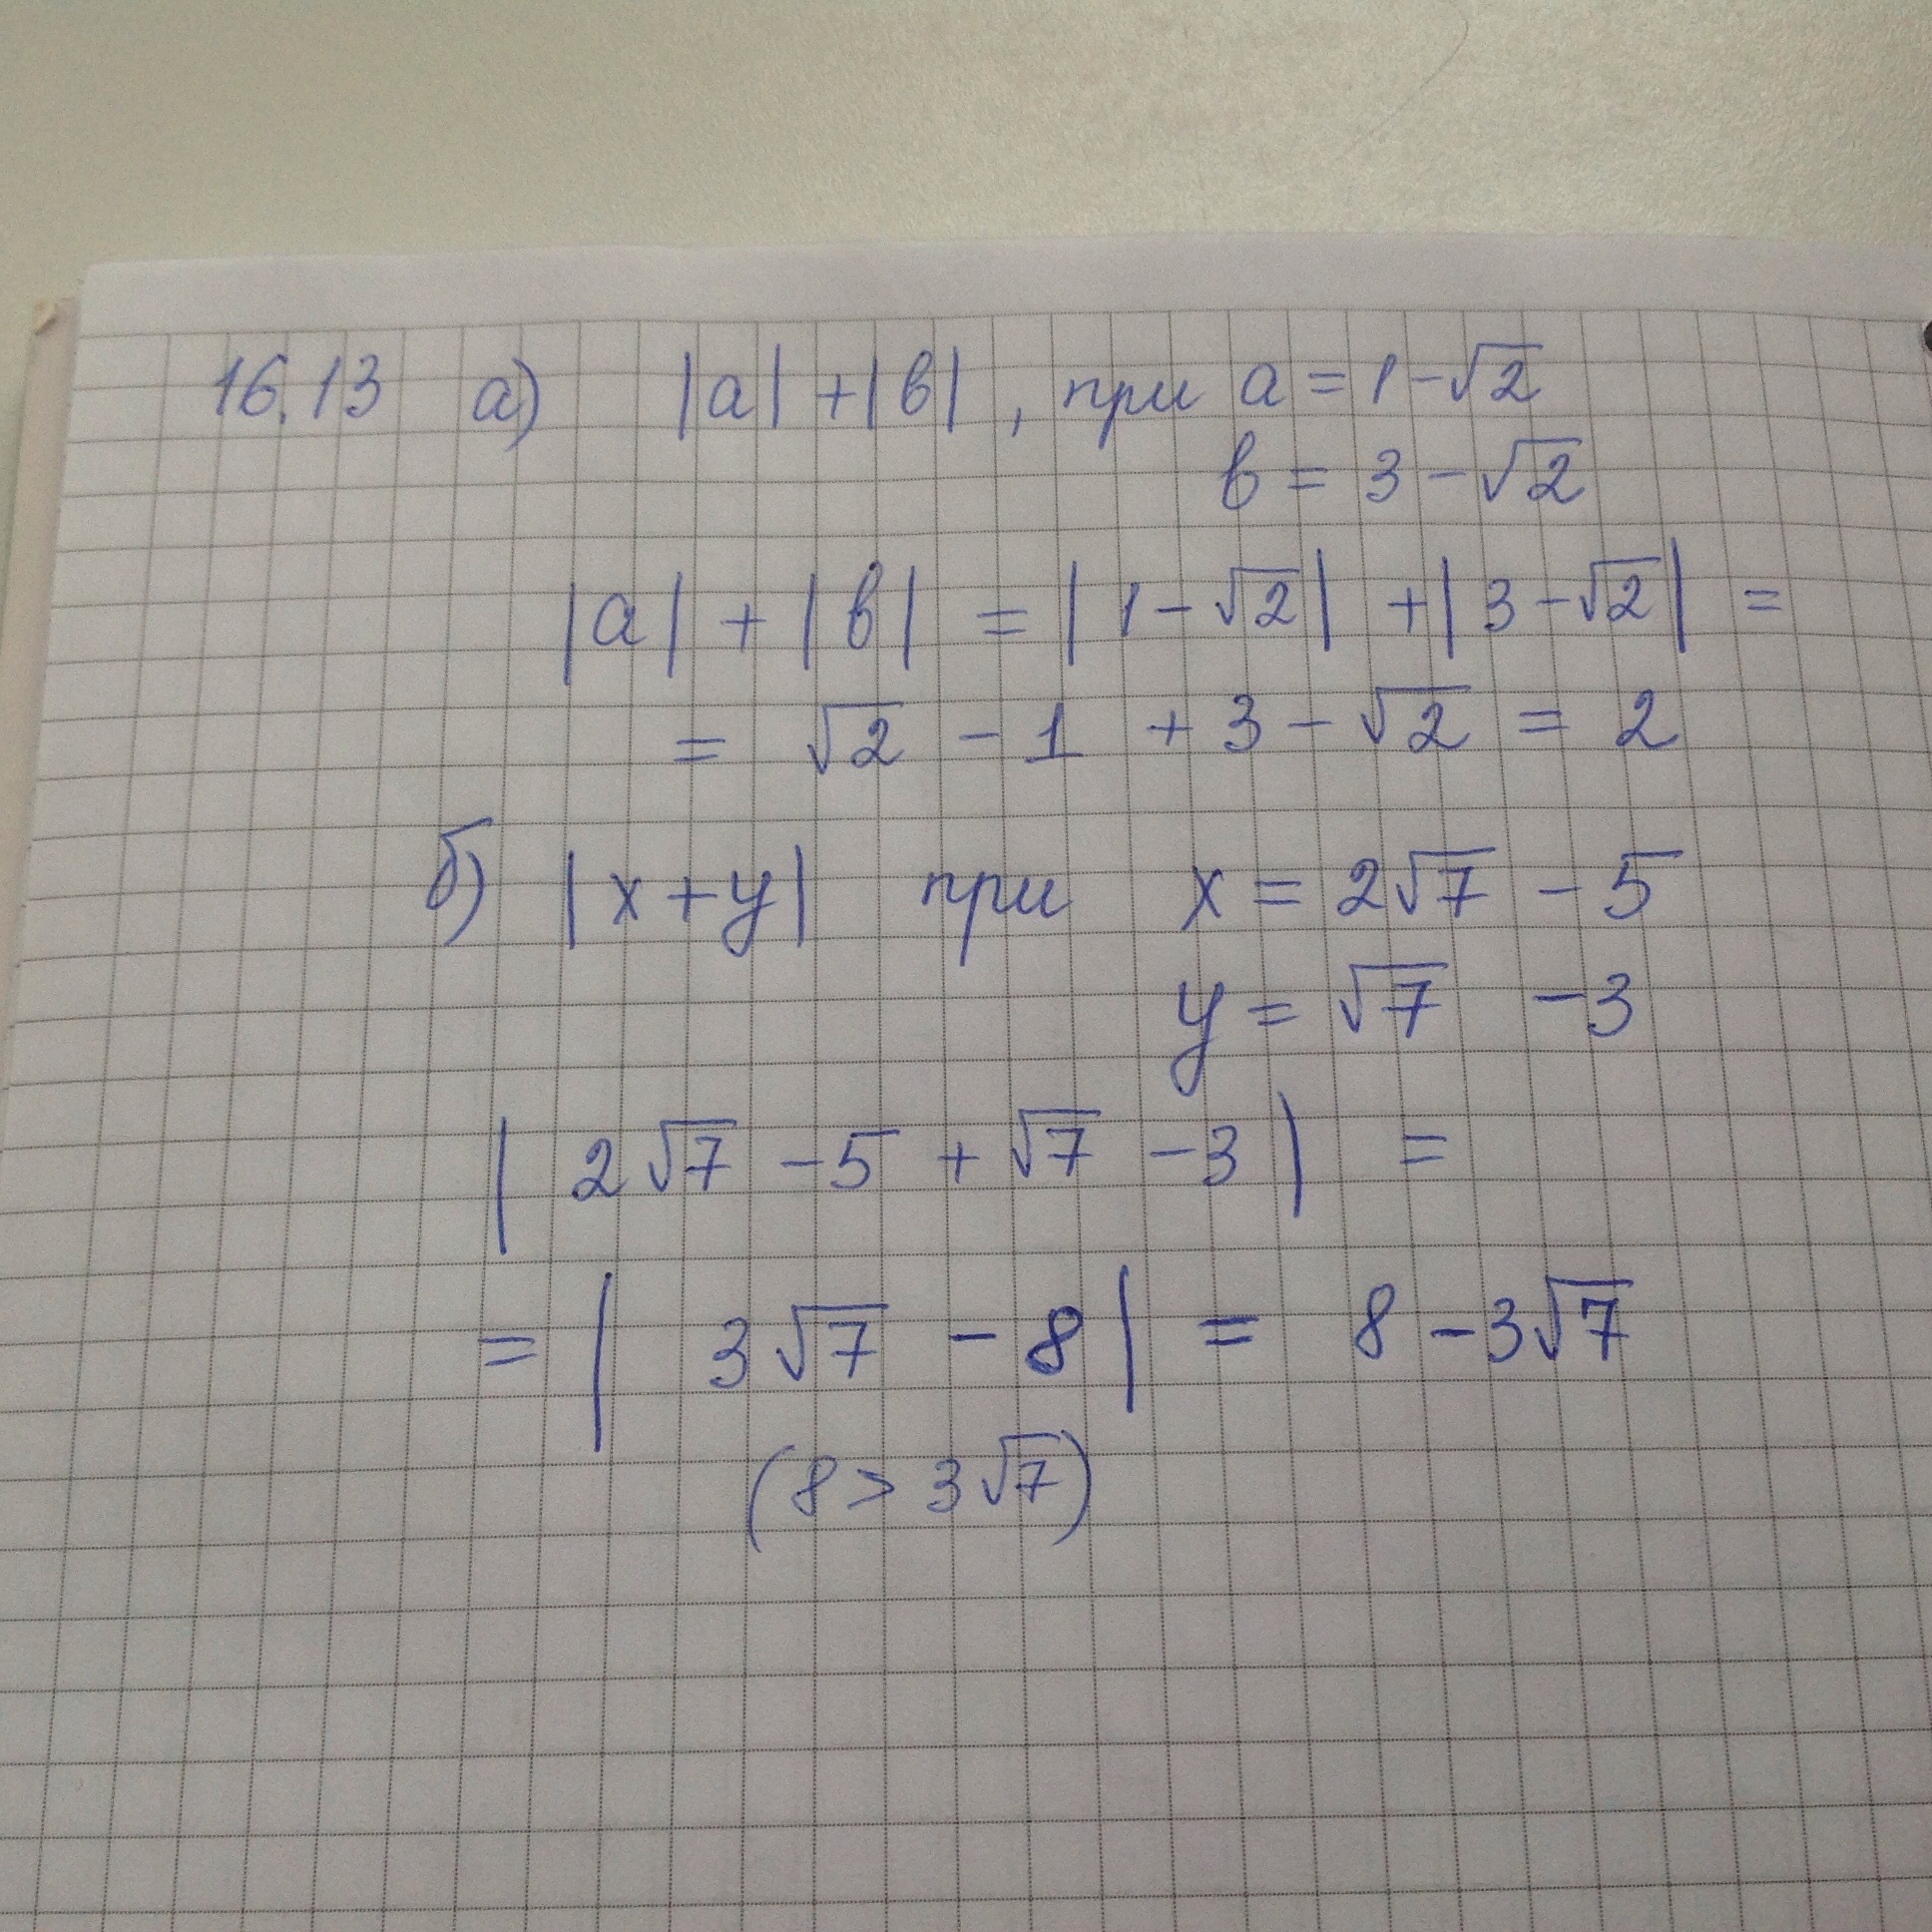 16.13 а) |a| + |b| , при a = 1 - √2
b = 3 - √2
|a| + |b| = | 1 - √2 | + | 3 - √2 | =
= √2 - 1 + 3 - √2 = 2
б) | x + y | при x = 2√7 - 5
y = √7 - 3
| 2√7 - 5 + √7 - 3 | =
= | 3√7 - 8 | = 8 - 3√7
(8 > 3√7)